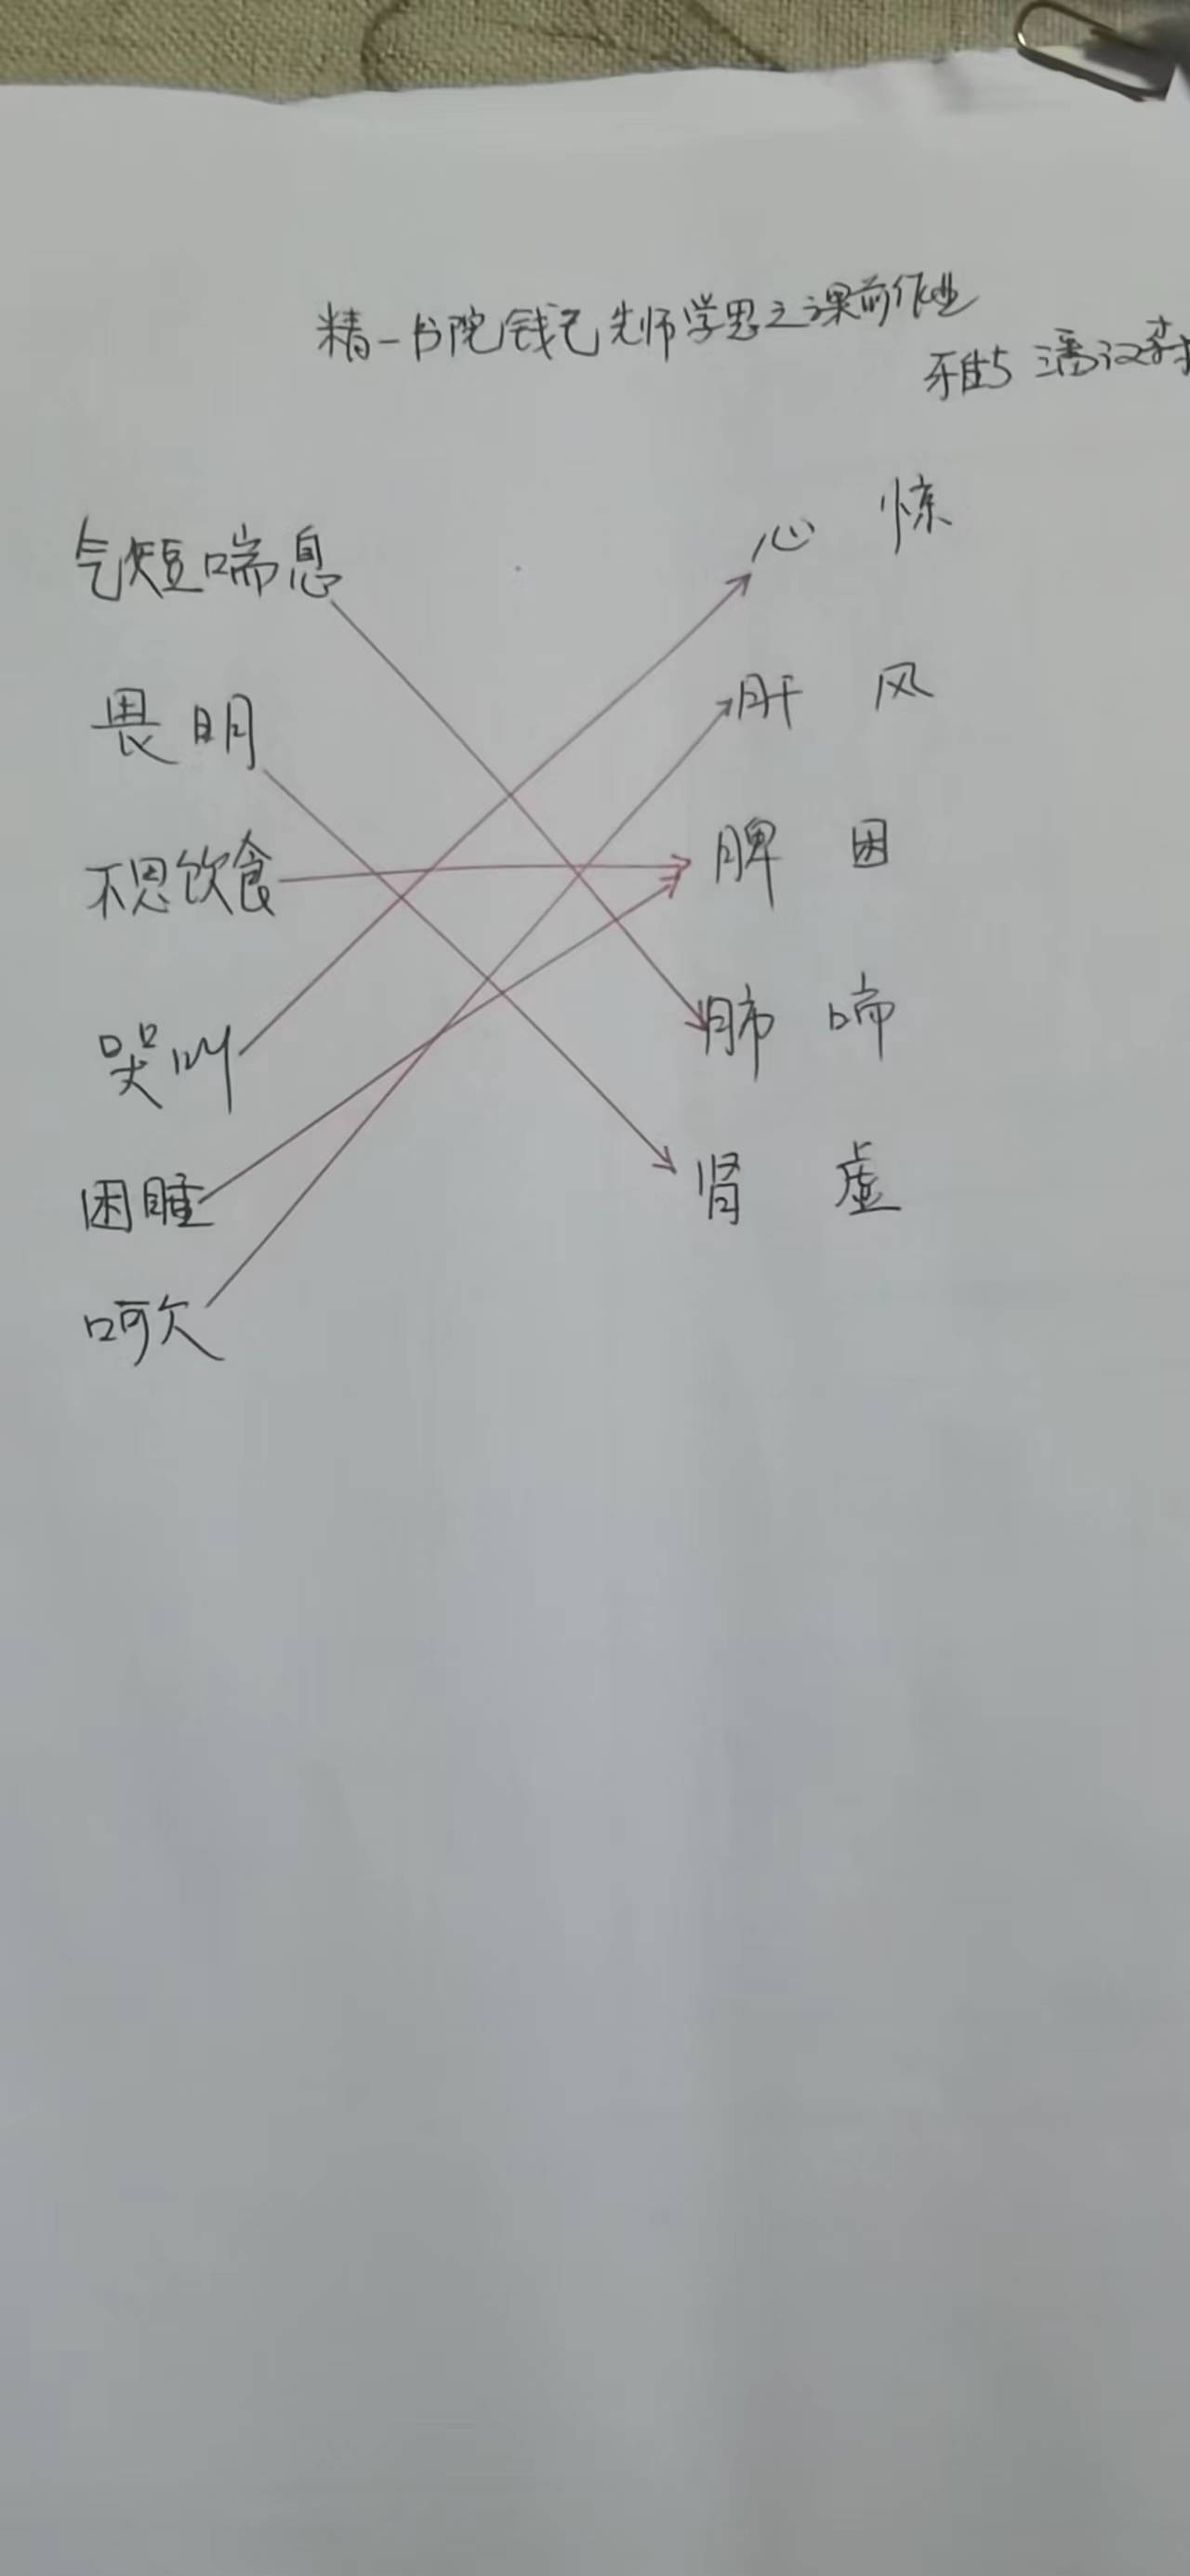 精一书院钱乙先师学思之课前作业
雅5 潘汉
气短喘息
心 惊
畏明
肝 风
不思饮食
脾 困
哭叫
肺 喘
困睡
肾 虚
呵欠